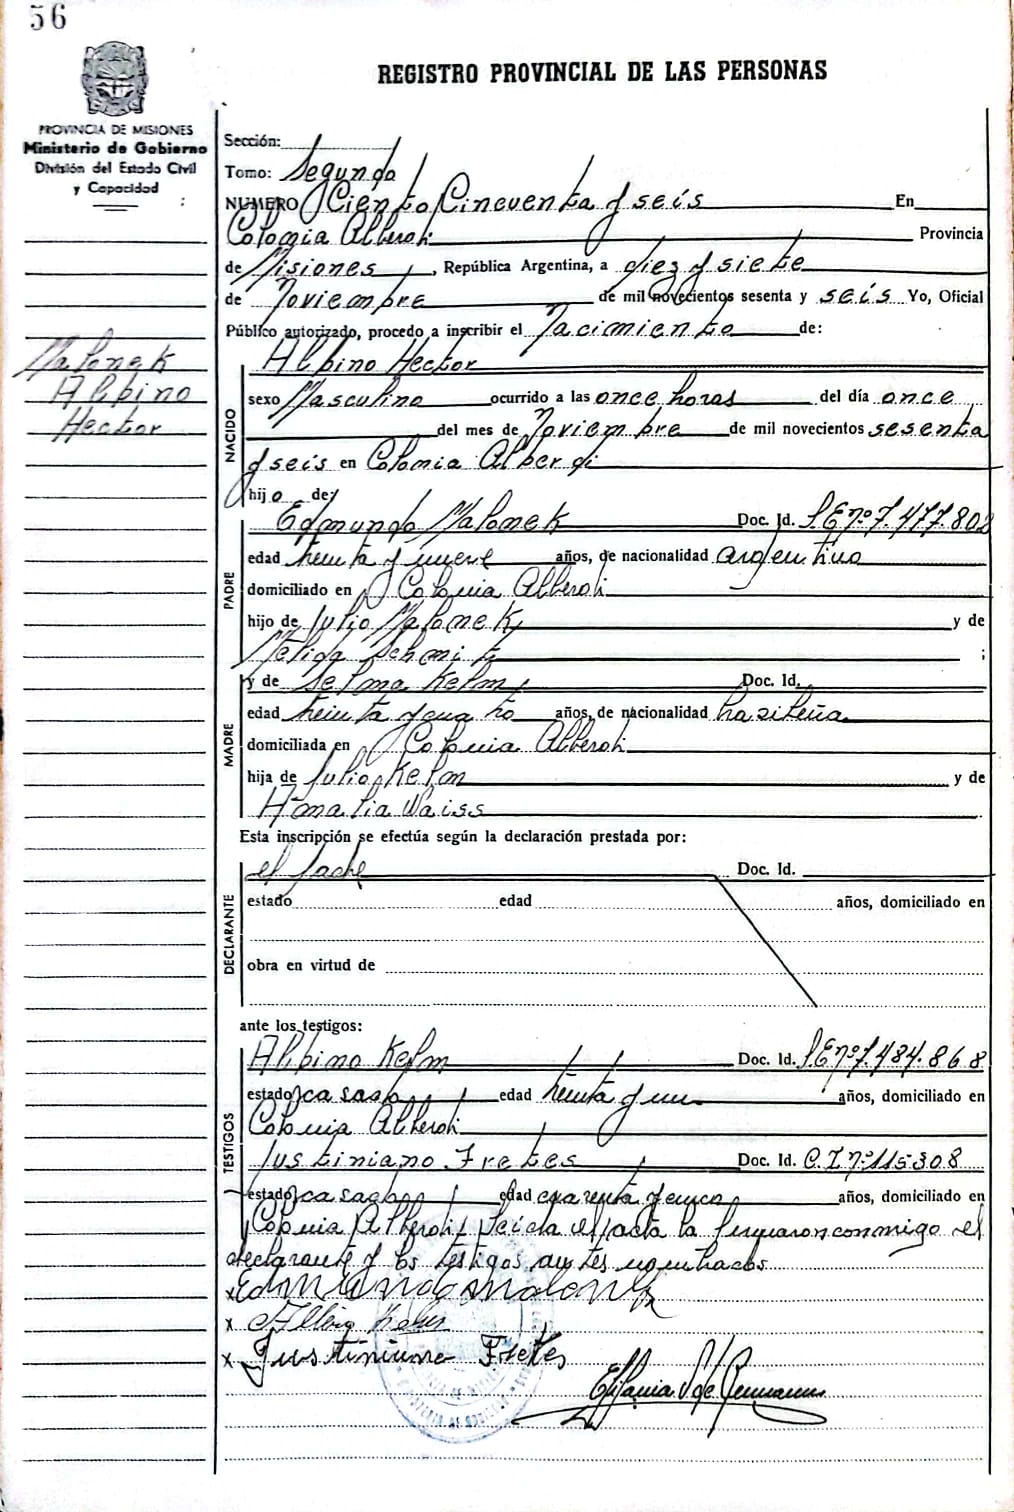 56
REGISTRO PROVINCIAL DE LAS PERSONAS
PROVINCIA DE MISIONES
Ministerio de Gobierno
División del Estado Civil
y Capacidad
Malonek
Albino
Hector
Sección:
Tomo: Segundo
NUMERO Ciento Cincuenta y seis En
Colonia Alberdi Provincia
de Misiones, República Argentina, a diez y siete
de Noviembre de mil novecientos sesenta y seis Yo, Oficial
Público autorizado, procedo a inscribir el Nacimiento de:
NACIDO
Albino Hector
sexo Masculino ocurrido a las once horas del día once
del mes de Noviembre de mil novecientos sesenta
y seis en Colonia Alberdi
hijo de:
PADRE
Edmundo Malonek Doc. Id. L.E nº 7.477.802
edad treinta y nueve años, de nacionalidad argentino
domiciliado en Colonia Alberdi
hijo de Julio Malonek y de
Melida Schmit ;
MADRE
y de Selma Kelm Doc. Id.
edad treinta y cuatro años, de nacionalidad brasileña
domiciliada en Colonia Alberdi
hija de Julio Kelm y de
Amalia Waiss
Esta inscripción se efectúa según la declaración prestada por:
DECLARANTE
el padre Doc. Id.
estado edad años, domiciliado en
obra en virtud de
ante los testigos:
TESTIGOS
Albino Kelm Doc. Id. L.E nº 7.484.868
estado casado edad treinta y un años, domiciliado en
Colonia Alberdi
Justiniano Fretes Doc. Id. C.I nº 115308
estado casado edad cuarenta y cinco años, domiciliado en
Colonia Alberdi Leída el acta la firmaron conmigo el
declarante y los testigos antes nombrados
x Edmundo Malonek
x Albino Kelm
x Justiniano Fretes